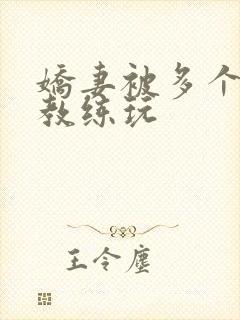 娇妻被多个
教练玩
王令尘